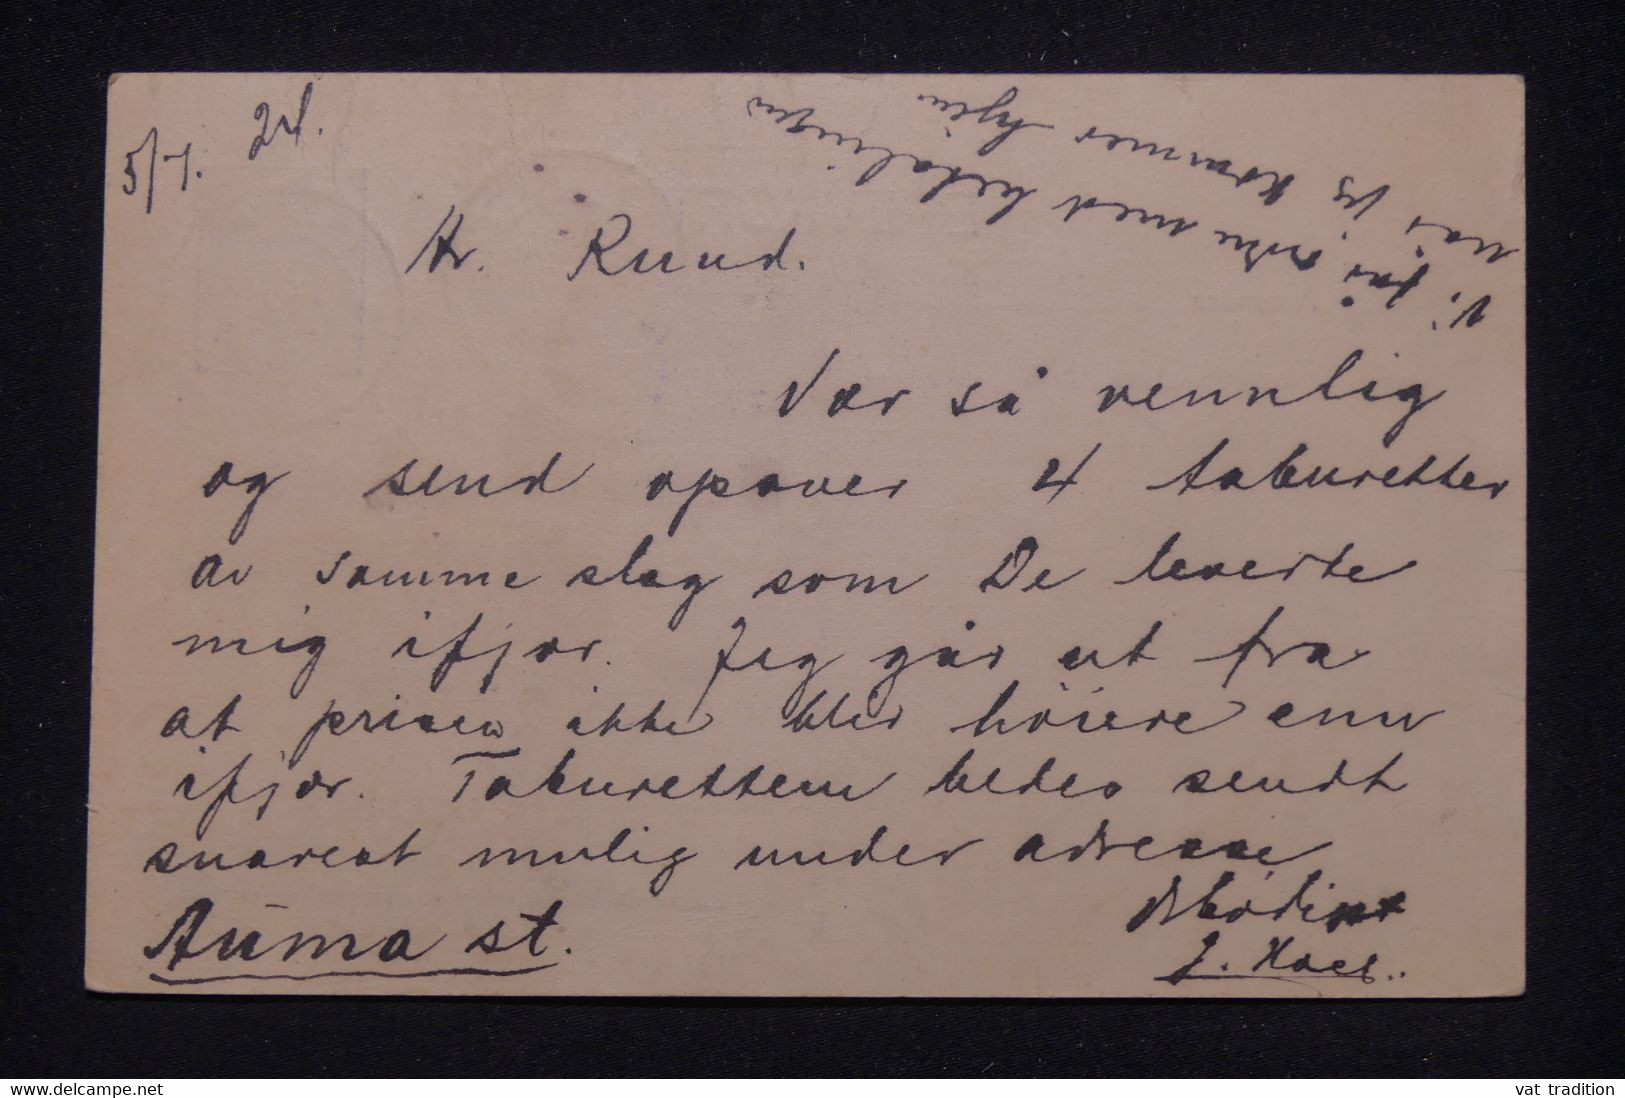 5/7. 24.
Hr. Ruud.
Vær så vennlig
og send opover 4 taburetter
av samme slag som De leverte
mig ifjor. Jeg går ut fra
at prisen ikke blir høiere enn
ifjor. Taburettene bedes sendt
snarest mulig under adresse
Auma st.
J. Hoel.
Vi får ordne med betalingen
når jeg kommer hjem
www.delcampe.net
vat tradition